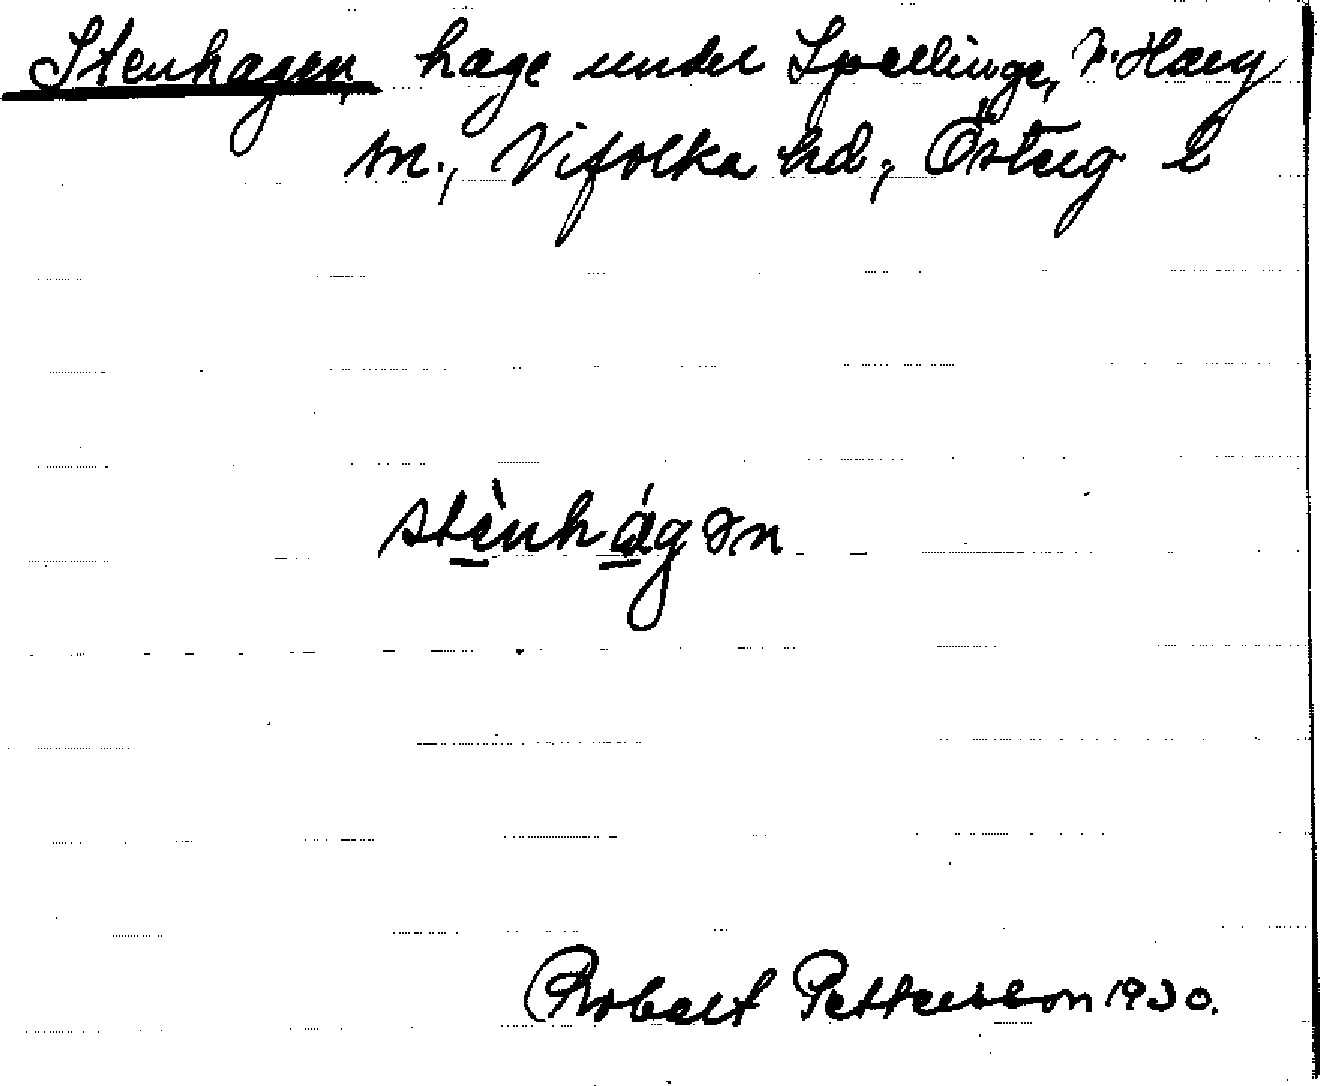 Stenhagen, hage under Spellinge, V. Harg
sn., Vifolka hd, Österg l
stènhágən
Robert Petterson 1930.